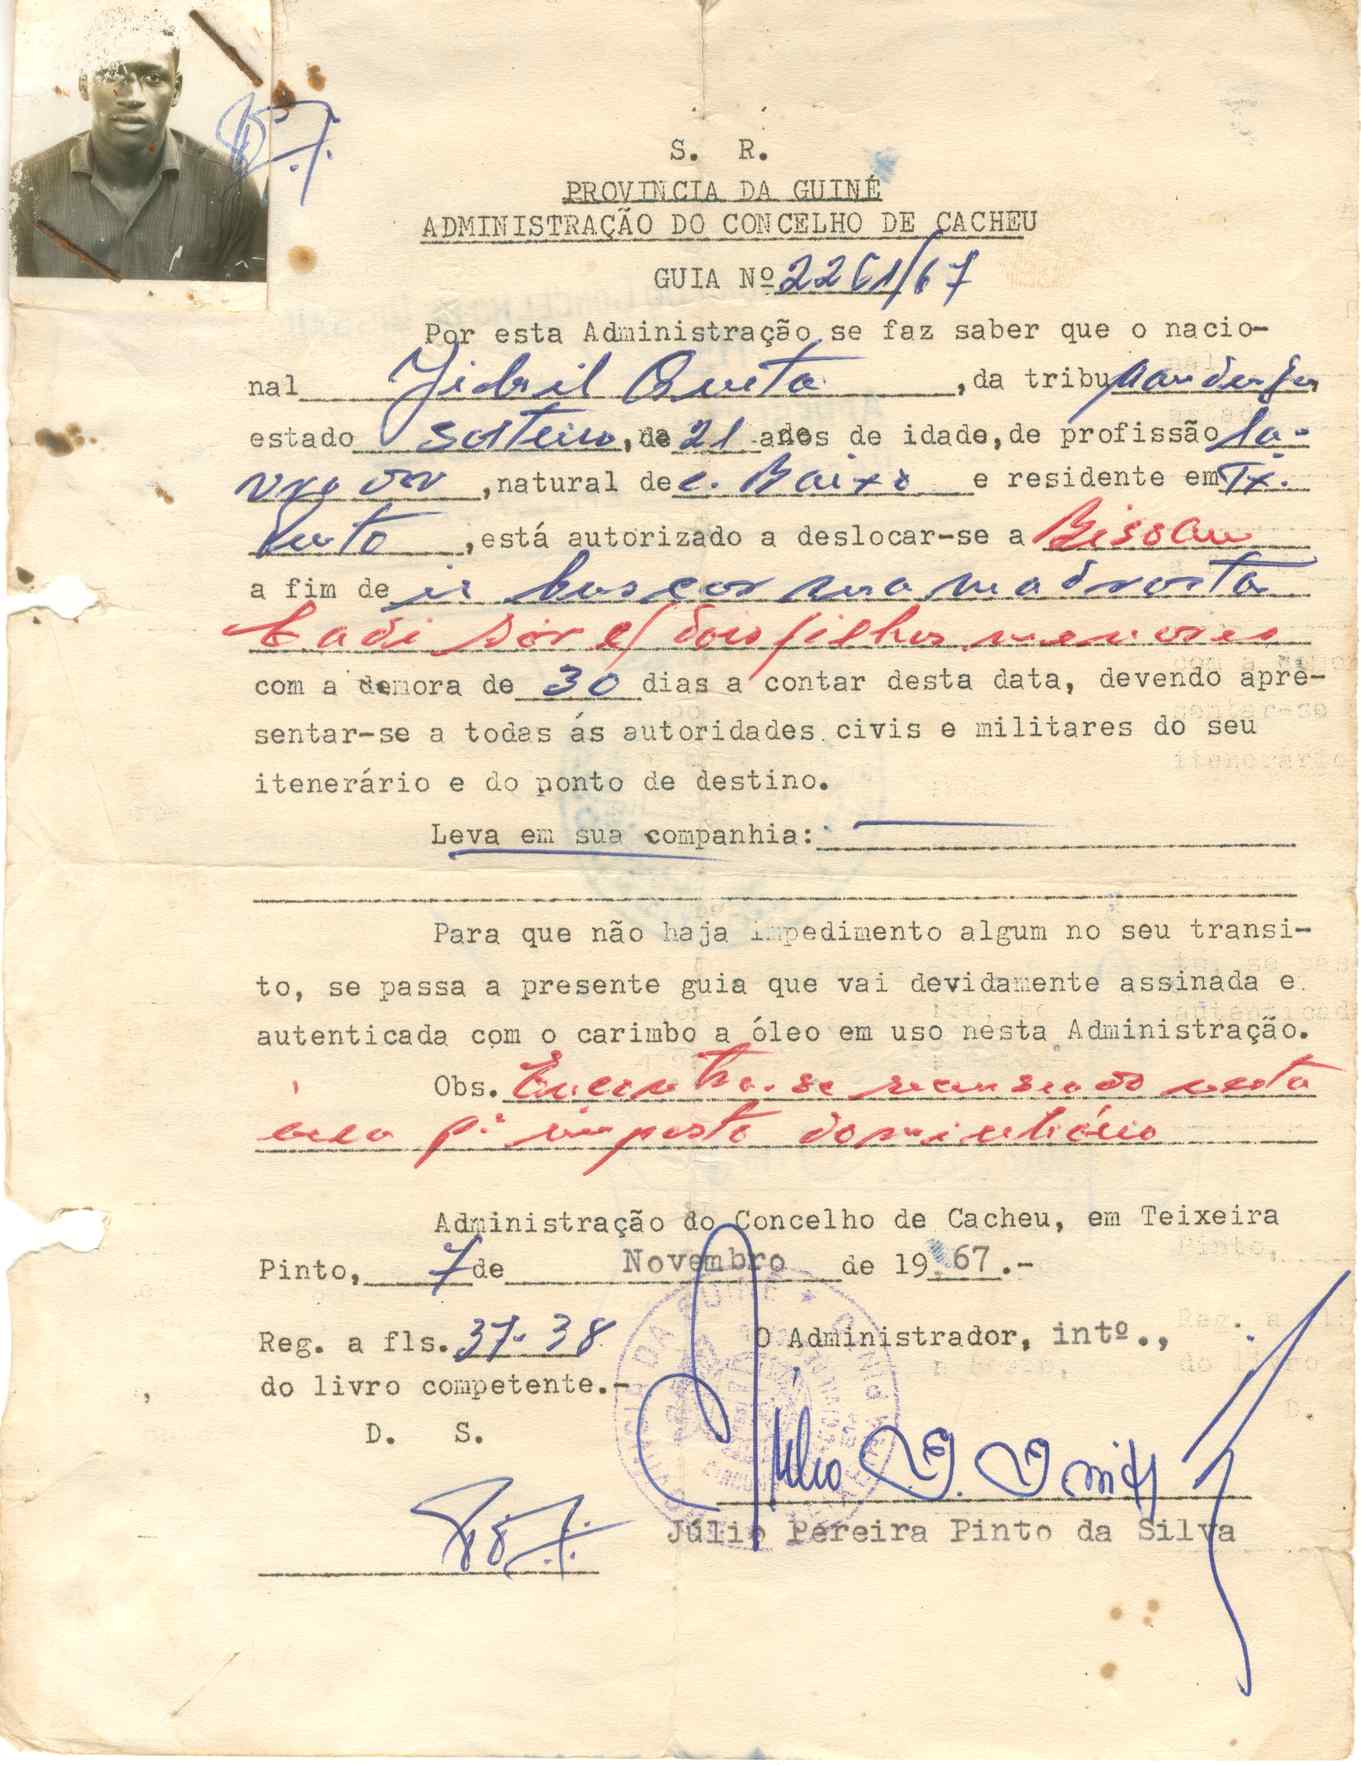 S. R.
PROVINCIA DA GUINÉ
ADMINISTRAÇÃO DO CONCELHO DE CACHEU
GUIA Nº 2261/67
Por esta Administração se faz saber que o nacio-
nal Jibril , da tribu
estado solteiro, de 21 anos de idade, de profissão la-
vrador , natural de C. Baixo e residente em Tx.
Pinto , está autorizado a deslocar-se a Bissau
a fim de ir buscar sua madrasta
Cadi c/ dois filhos menores
com a demora de 30 dias a contar desta data, devendo apre-
sentar-se a todas ás autoridades civis e militares do seu
itenerário e do ponto de destino.
Leva em sua companhia:
Para que não haja impedimento algum no seu transi-
to, se passa a presente guia que vai devidamente assinada e
autenticada com o carimbo a óleo em uso nesta Administração.
Obs. Encontra-se recenseado nesta
área pª imposto domiciliário
Administração do Concelho de Cacheu, em Teixeira
Pinto, 7 de Novembro de 19 67.-
Reg. a fls. 37-38 O Administrador, intº.,
do livro competente.-
D. S.
Júlio Pereira Pinto da Silva